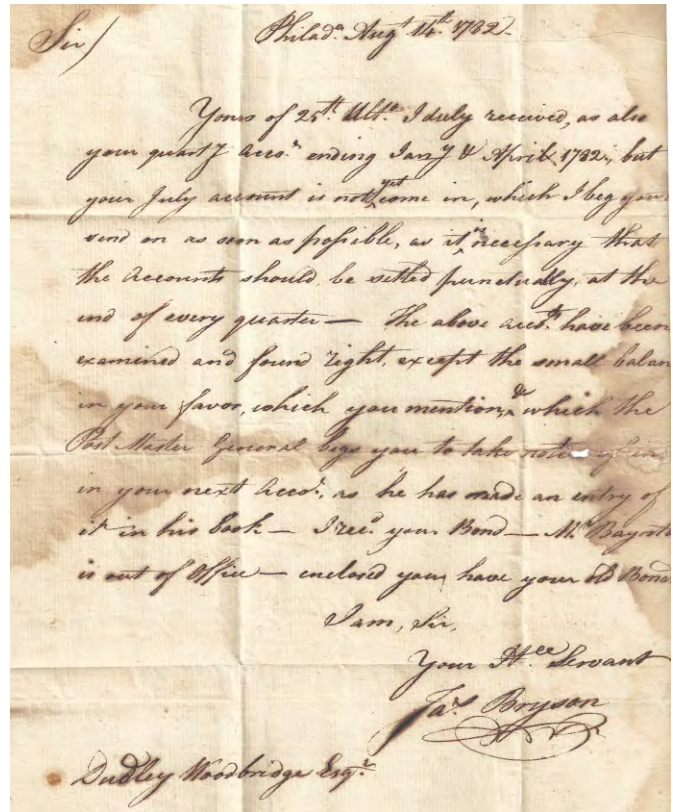 Sir) Philad.ª Aug.t 14.th 1782.
Yours of 25.th Ult.o I duly received, as also
your quart.y Acco.ts ending Jan.y & April 1782, but
your July account is not yet come in, which I beg you
send on as soon as possible, as it is necessary that
the Accounts should be settled punctually, at the
end of every quarter — The above acco.ts have been
examined and found right, except the small balan
in your favor, which you mention, & which the
Post Master General begs you to take note of
in your next Acco.t, as he has made an entry of
it in his book — I rec.d your Bond — M.r
is out of Office — enclosed you have your old Bond.
I am, Sir,
Your H.ble Servant
Ja.s Bryson
Dudley Woodbridge Esq.r